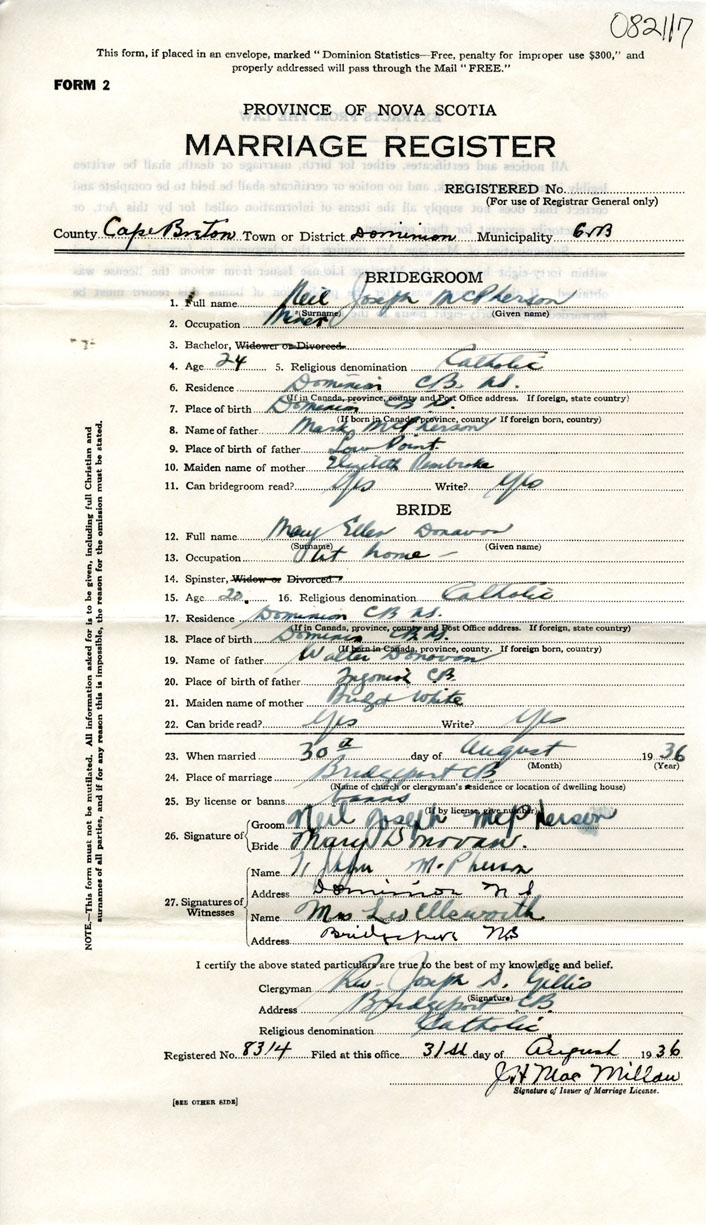 082117
This form, if placed in an envelope, marked "Dominion Statistics—Free, penalty for improper use $300," and
properly addressed will pass through the Mail "FREE."
FORM 2
PROVINCE OF NOVA SCOTIA
MARRIAGE REGISTER
REGISTERED No.
(For use of Registrar General only)
County Cape Breton Town or District Dominion Municipality C.B
BRIDEGROOM
1. Full name Neil Joseph McPherson
(Surname) (Given name)
2. Occupation Miner
3. Bachelor, Widower or Divorced
4. Age 24 5. Religious denomination Catholic
6. Residence Dominion C.B. N.S.
(If in Canada, province, county and Post Office address. If foreign, state country)
7. Place of birth Dominion C.B. N.S.
(If born in Canada, province, county. If foreign born, country)
8. Name of father McPherson
9. Place of birth of father Low Point
10. Maiden name of mother Elizabeth Pembroke
11. Can bridegroom read? Yes Write? Yes
BRIDE
12. Full name Mary Ellen Donavon
(Surname) (Given name)
13. Occupation At home —
14. Spinster, Widow or Divorced
15. Age 20. 16. Religious denomination Catholic
17. Residence Dominion C.B. N.S.
(If in Canada, province, county and Post Office address. If foreign, state country)
18. Place of birth Dominion C.B. N.S.
(If born in Canada, province, county. If foreign born, country)
19. Name of father Walter Donovan
20. Place of birth of father Ingonish C.B.
21. Maiden name of mother White
22. Can bride read? Yes Write? Yes
23. When married 30 day of August 1936
(Month) (Year)
24. Place of marriage Bridgeport C.B
(Name of church or clergyman's residence or location of dwelling house)
25. By license or banns banns
(If by license, give number)
26. Signature of
Groom Neil Joseph McPherson
Bride Mary Donovan.
27. Signatures of Witnesses
Name McPherson
Address Dominion N S
Name Mrs Ellsworth
Address Bridgeport N.S
I certify the above stated particulars are true to the best of my knowledge and belief.
Clergyman Rev. Joseph S. Gillis
(Signature)
Address Bridgeport C.B.
Religious denomination Catholic
Registered No. 8314 Filed at this office 31st day of August 1936
J H Mac Millan
Signature of Issuer of Marriage License.
[SEE OTHER SIDE]
NOTE.—This form must not be mutilated. All information asked for is to be given, including full Christian and
surnames of all parties, and if for any reason this is impossible, the reason for the omission must be stated.